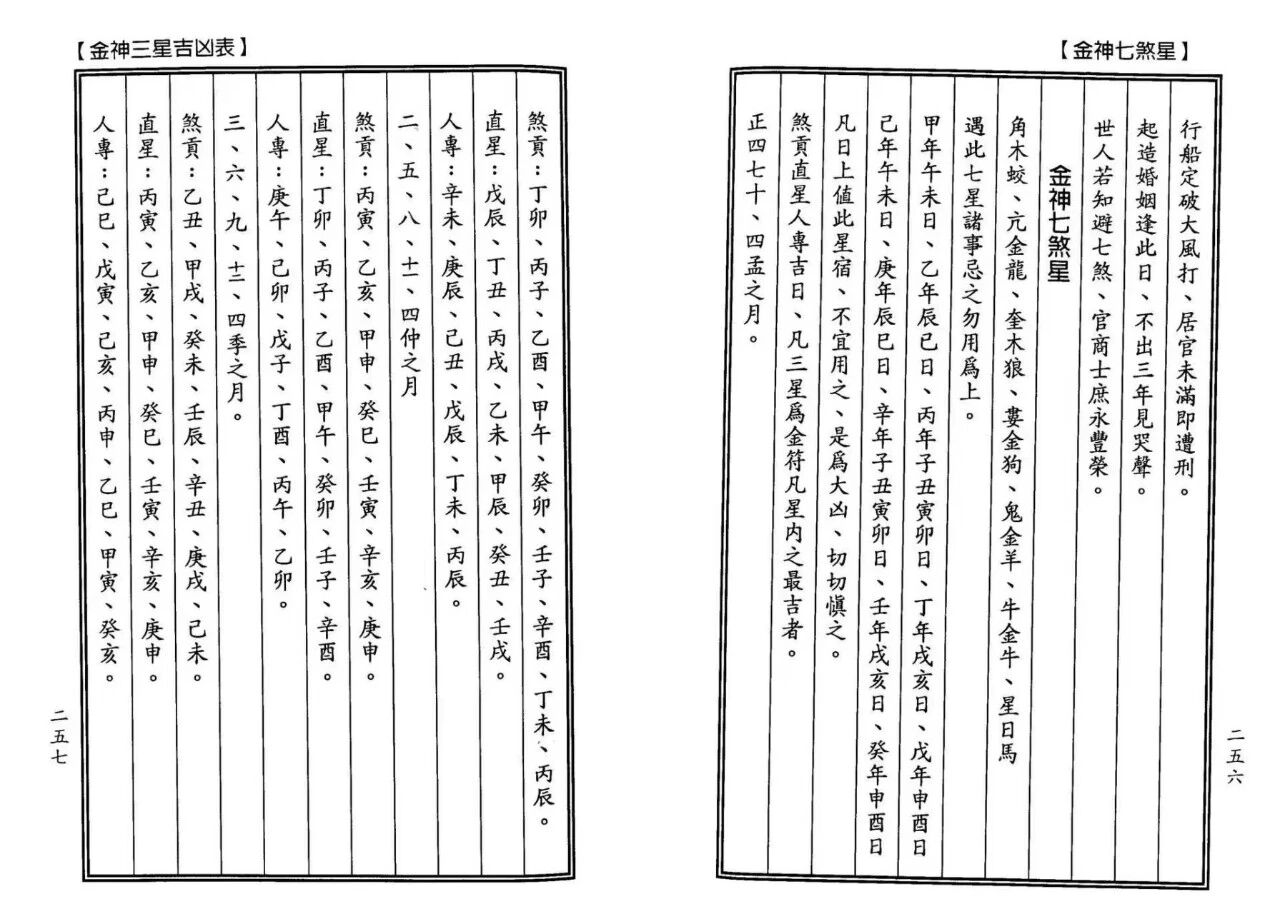 【金神七煞星】
行船定破大風打、居官未滿即遭刑。
起造婚姻逢此日、不出三年見哭聲。
世人若知避七煞、官商士庶永豐榮。
金神七煞星
角木蛟、亢金龍、奎木狼、婁金狗、鬼金羊、牛金牛、星日馬
遇此七星諸事忌之勿用爲上。
甲年午未日、乙年辰巳日、丙年子丑寅卯日、丁年戌亥日、戊年申酉日
己年午未日、庚年辰巳日、辛年子丑寅卯日、壬年戌亥日、癸年申酉日
凡日上值此星宿、不宜用之、是爲大凶、切切慎之。
煞貢直星人專吉日、凡三星爲金符凡星内之最吉者。
正四七十、四孟之月。
二五六
【金神三星吉凶表】
煞貢：丁卯、丙子、乙酉、甲午、癸卯、壬子、辛酉、丁未、丙辰。
直星：戊辰、丁丑、丙戌、乙未、甲辰、癸丑、壬戌。
人專：辛未、庚辰、己丑、戊辰、丁未、丙辰。
二、五、八、十一、四仲之月
煞貢：丙寅、乙亥、甲申、癸巳、壬寅、辛亥、庚申。
直星：丁卯、丙子、乙酉、甲午、癸卯、壬子、辛酉。
人專：庚午、己卯、戊子、丁酉、丙午、乙卯。
三、六、九、十二、四季之月。
煞貢：乙丑、甲戌、癸未、壬辰、辛丑、庚戌、己未。
直星：丙寅、乙亥、甲申、癸巳、壬寅、辛亥、庚申。
人專：己巳、戊寅、己亥、丙申、乙巳、甲寅、癸亥。
二五七